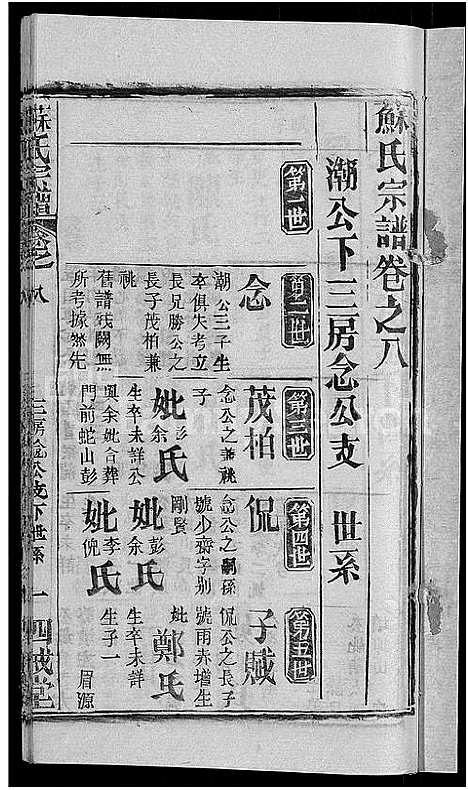 蘇氏宗譜卷之八
潮公下三房念公支　世系
第一世
第二世
念
潮公三子生
卒俱失考立
長兄勝公之
長子茂柏兼
祧
舊譜殘闕無
所考據
第三世
茂柏
念公之兼祧
子
妣彭余氏
生卒未詳公
與余妣合葬
門前蛇山彭
第四世
侃
念公之嗣孫
號少齋字別
剛賢
妣彭余氏
妣李倪氏
第五世
子贓
侃公之長子
號雨赤增生
妣鄭氏
生卒未詳
生子一
眉源
蘇氏宗譜
卷之八
三房念公支下世系
一
四戒堂